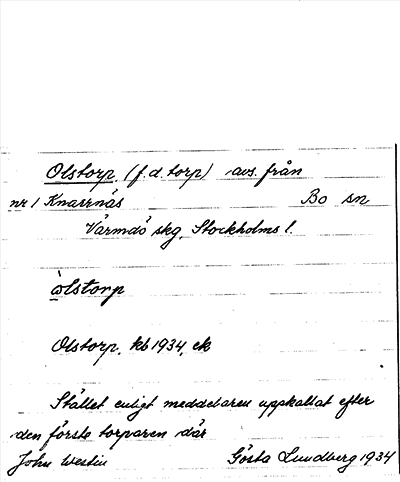 Olstorp, (f.d. torp) avs. från
nr 1 Knarrnäs Bo sn
Värmdö skg. Stockholms l.
òlstorp
Olstorp, kb 1934, ek
Stället enligt meddelaren uppkallat efter
den förste torparen där
John Westin Gösta Lundberg 1934